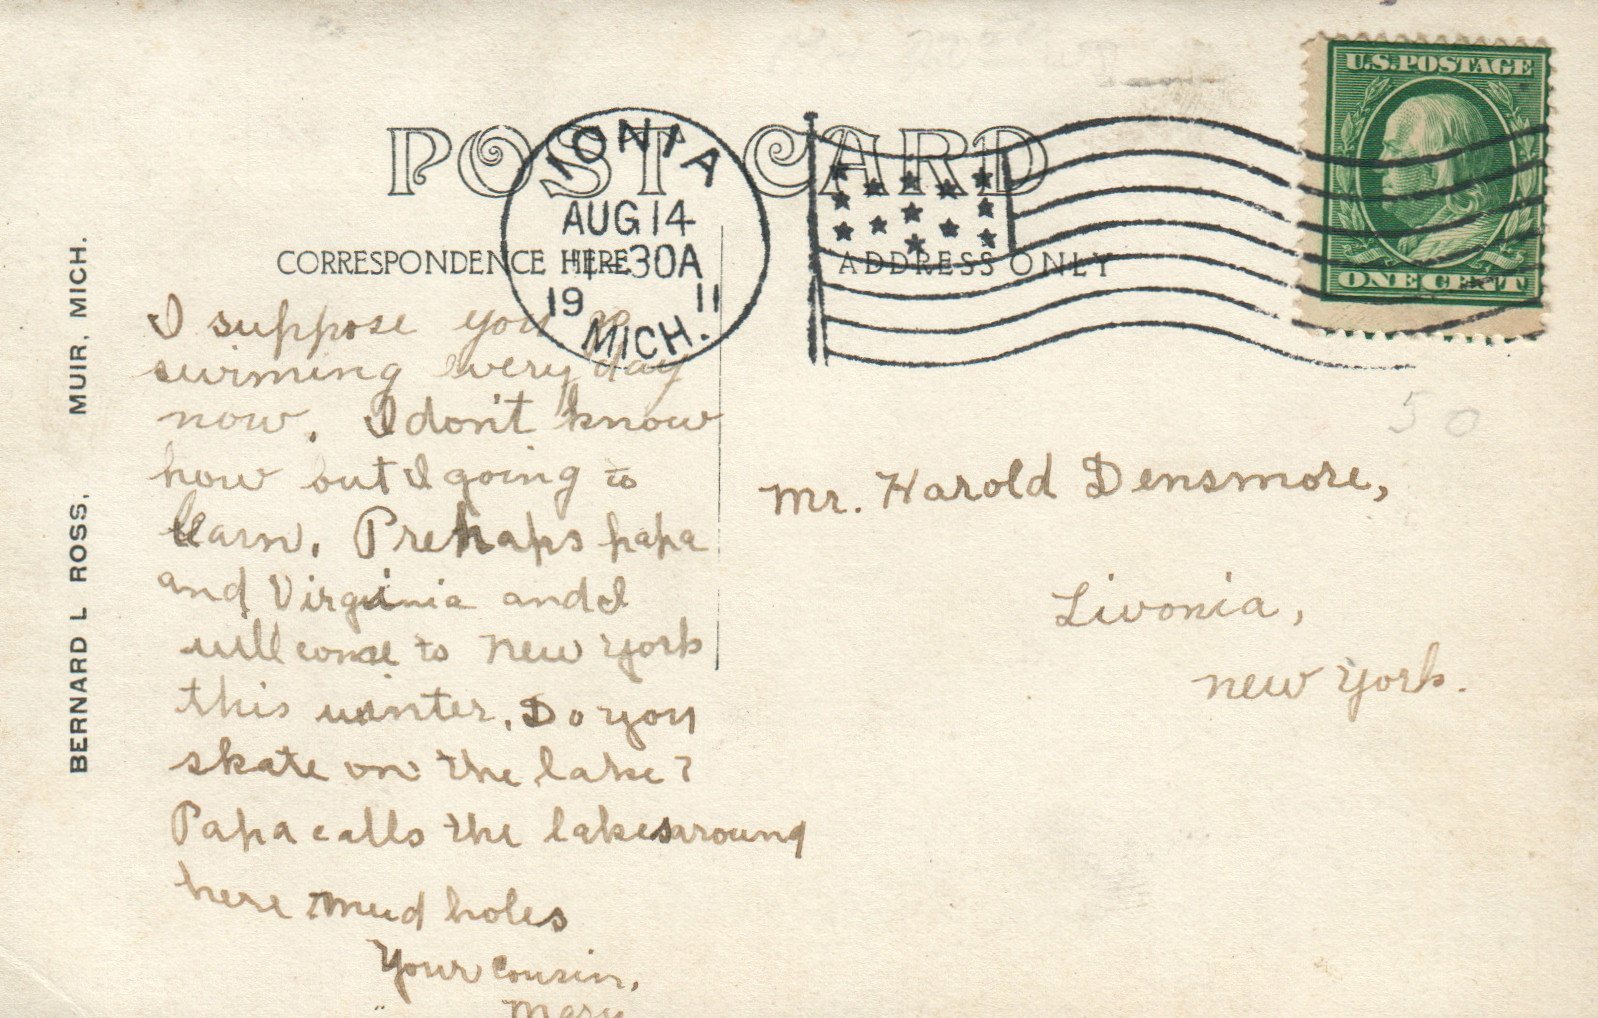 POST CARD
CORRESPONDENCE HERE
ADDRESS ONLY
IONIA
AUG 14
1-30A
19 11
MICH.
U.S. POSTAGE
ONE CENT
50
BERNARD L ROSS, MUIR, MICH.
I suppose you go
swiming every day
now. I don't know
how but I going to
learn. Prehaps papa
and Virginia and I
will come to New York
this winter. Do you
skate on the lake?
Papa calls the lakes around
here mud holes
Your cousin,
Mary
Mr. Harold Densmore,
Livonia,
New York.